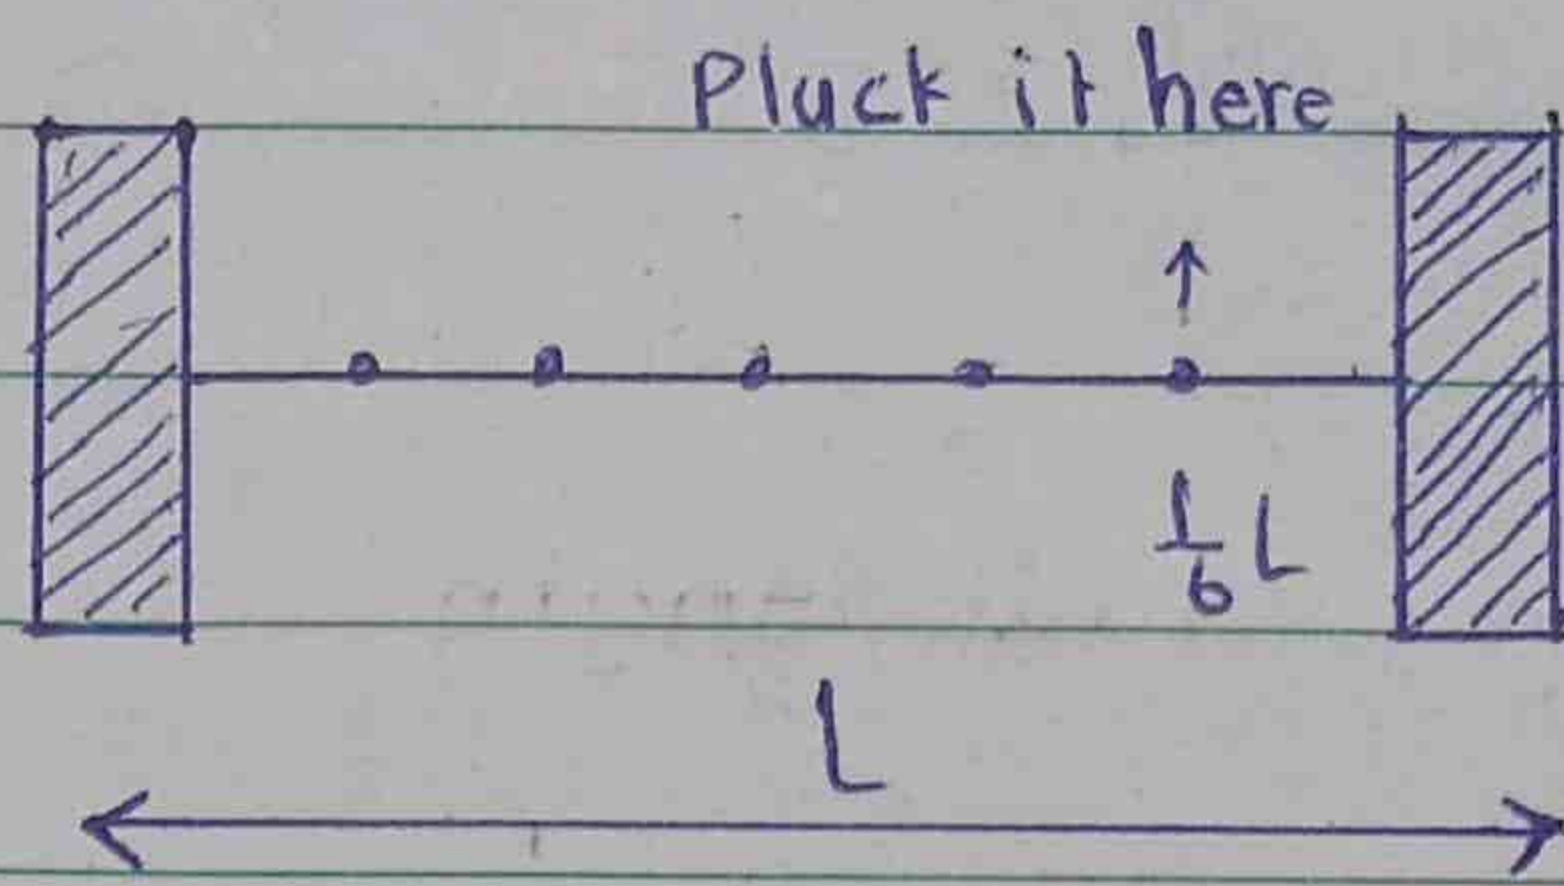 Pluck it here
1/6 L
L